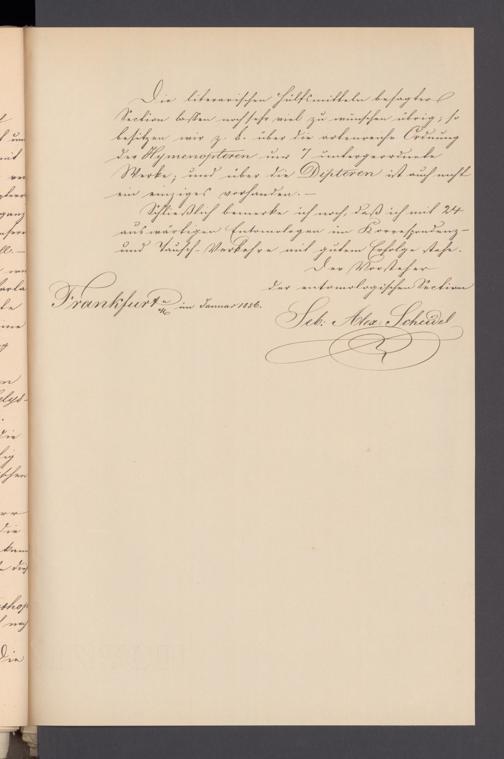 Die literarischen Hülfsmitteln besagter
Section lassen noch sehr viel zu wünschen übrig; so
besitzen wir z. b. über die artenreiche Ordnung
der Hymenopteren nur 7 untergeordnete
Werke; und über die Dipteren ist auch nicht
ein einziges vorhanden. —
Schließlich bemerke ich noch, daß ich mit 24
auswärtigen Entomologen im Korrespondenz-
und Tausch-Verkehre mit gutem Erfolge stehe.
Der Vorsteher
der entomologischen Section
Frankfurt a/M. im Januar 1856.
Seb. Alex. Scheidel